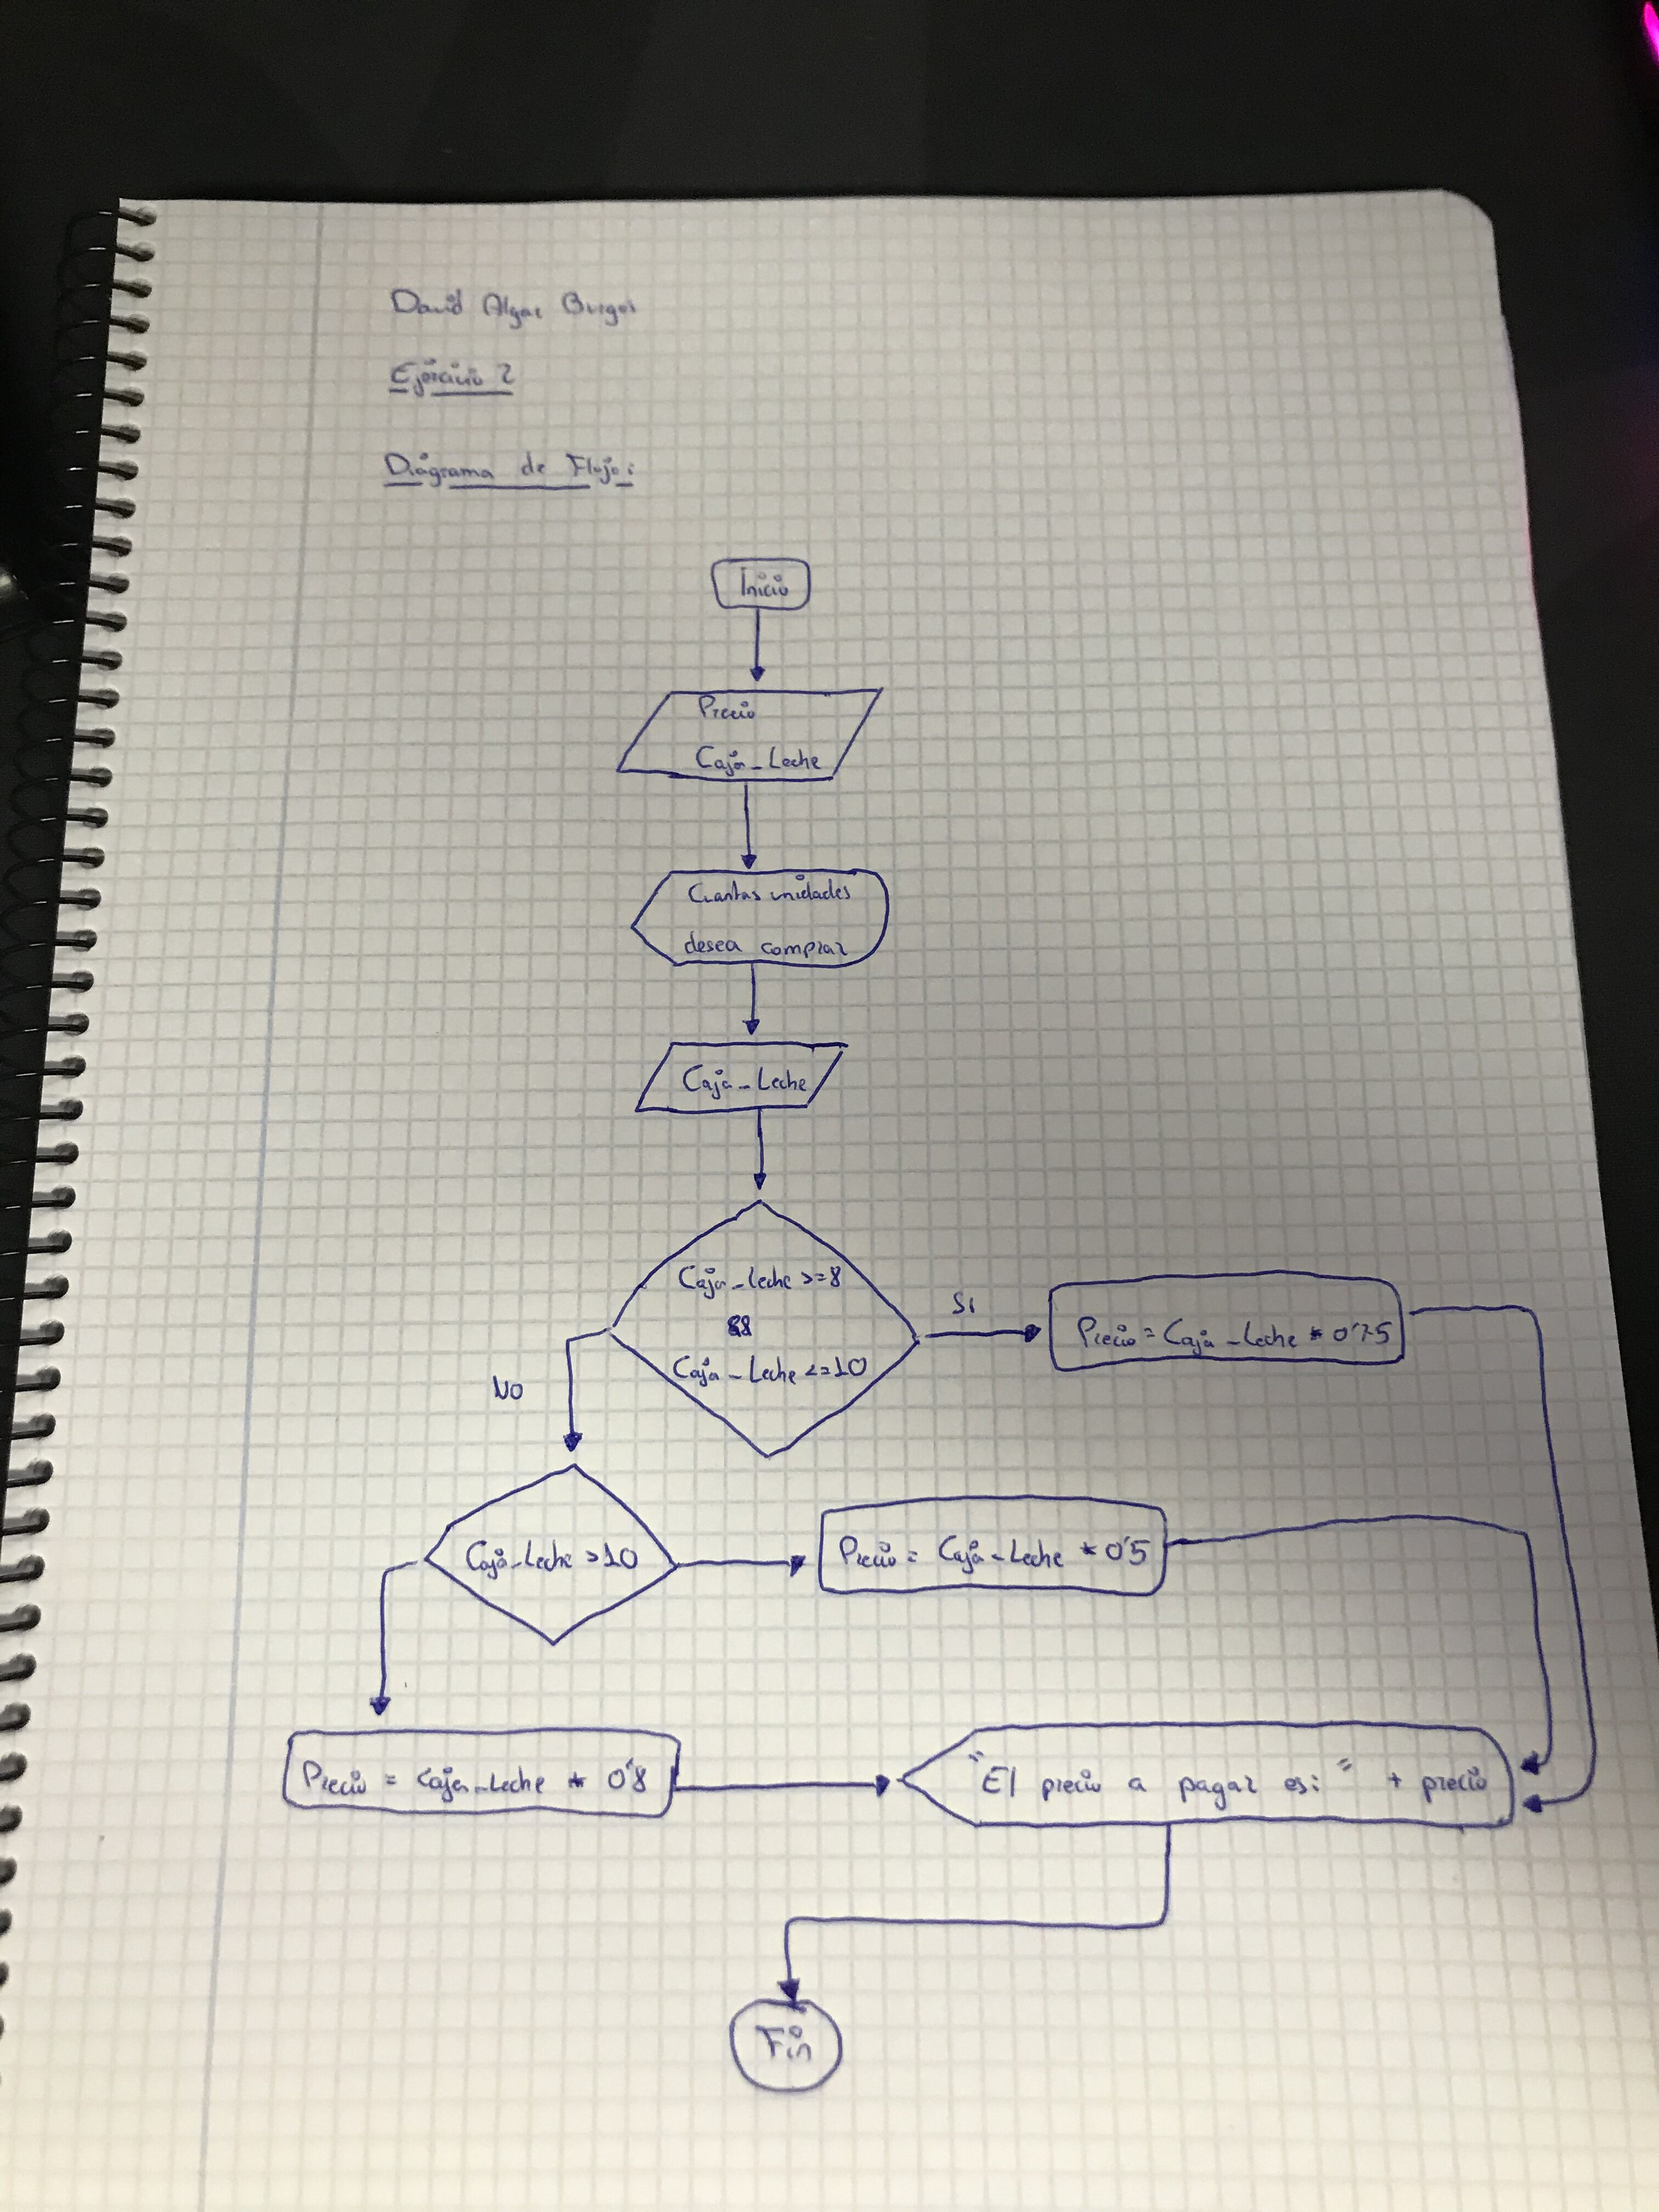 David Algar Burgos
Ejercicio 2
Diagrama de Flujo:
Inicio
Precio
Caja_Leche
Cuantas unidades
desea comprar
Caja_Leche
Caja_Leche >=8
&&
Caja_Leche <=10
SI
Precio = Caja_Leche * 0'75
NO
Caja_Leche >10
Precio = Caja_Leche * 0'5
Precio = Caja_Leche * 0'8
"El precio a pagar es: " + precio
Fin